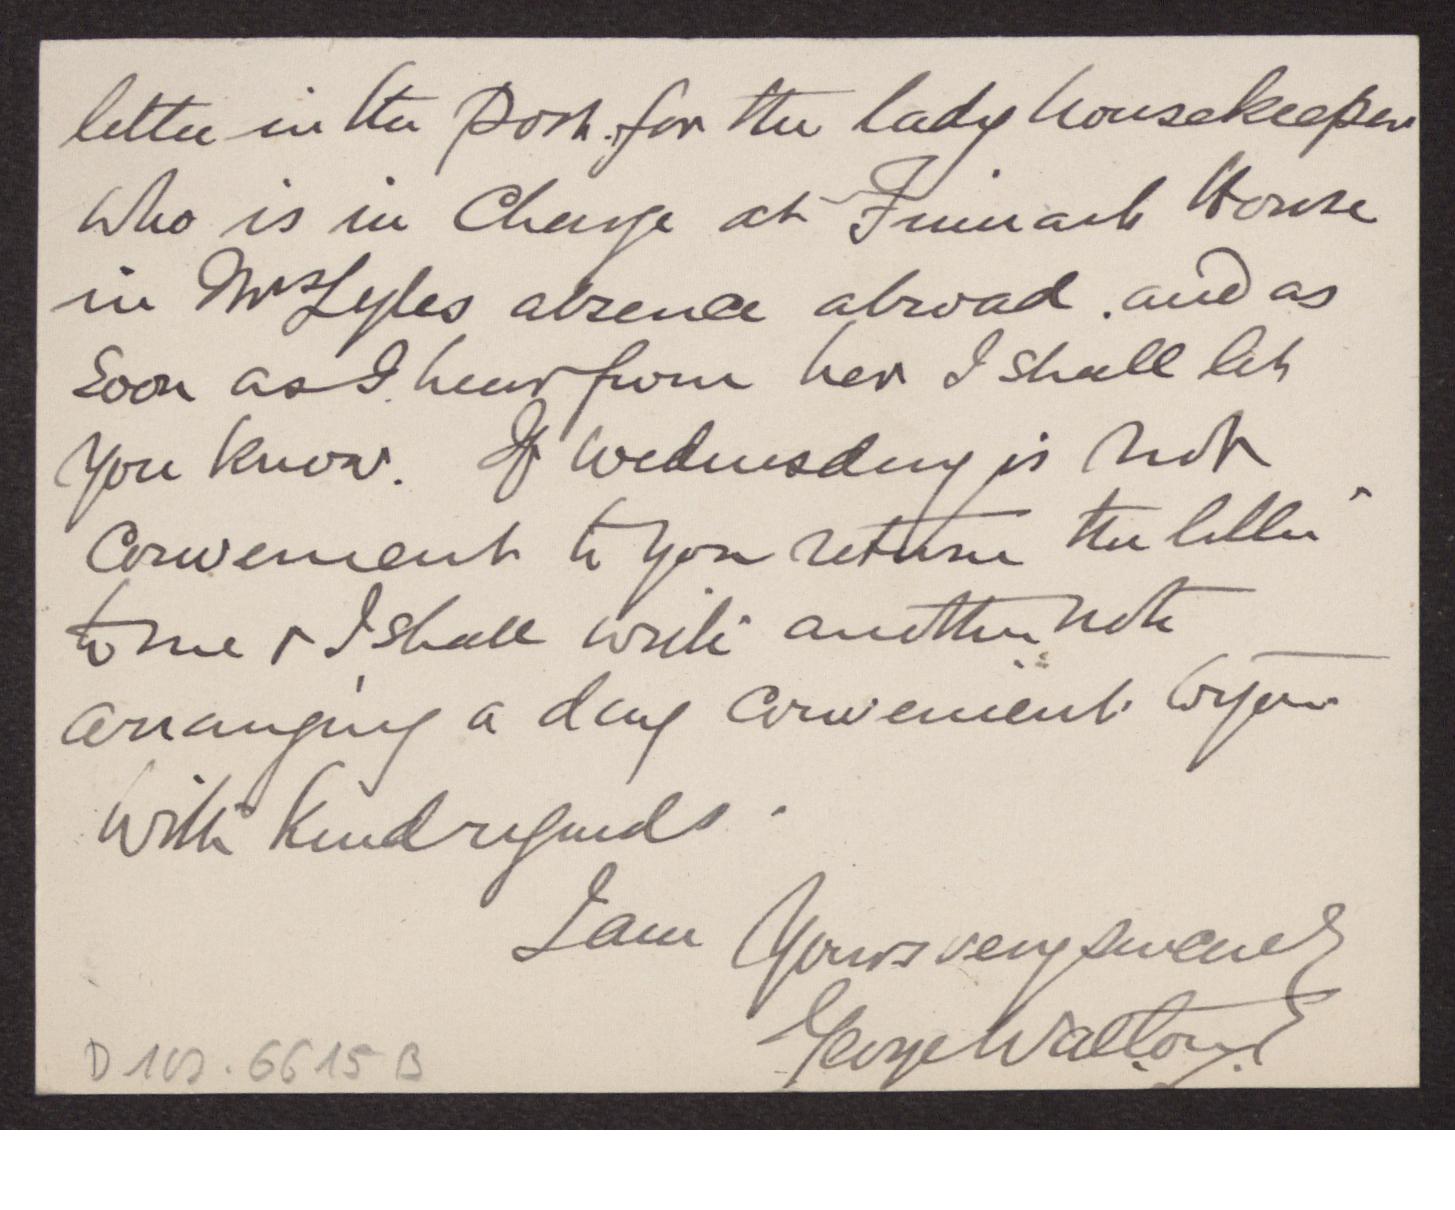 letter in the Post. for the lady housekeeper
who is in Charge at Finnart House
in Mrs Lyles absence abroad. and as
soon as I hear from her I shall let
you know. If Wednesday is not
convenient to you return the letter
to me & I shall write another note
arranging a day convenient to you
With kind regards.
I am Yours very sincerely
George Walton.
D 107. 6615 B